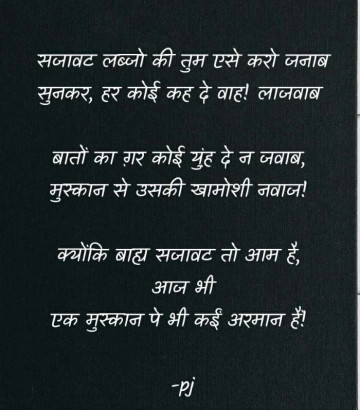 सजावट लब्जो की तुम एसे करो जनाब
सुनकर, हर कोई कह दे वाह! लाजवाब
बातों का ग़र कोई युंह दे न जवाब,
मुस्कान से उसकी खामोशी नवाज!
क्योंकि बाह्य सजावट तो आम है,
आज भी
एक मुस्कान पे भी कईं अरमान हैं!
-pj